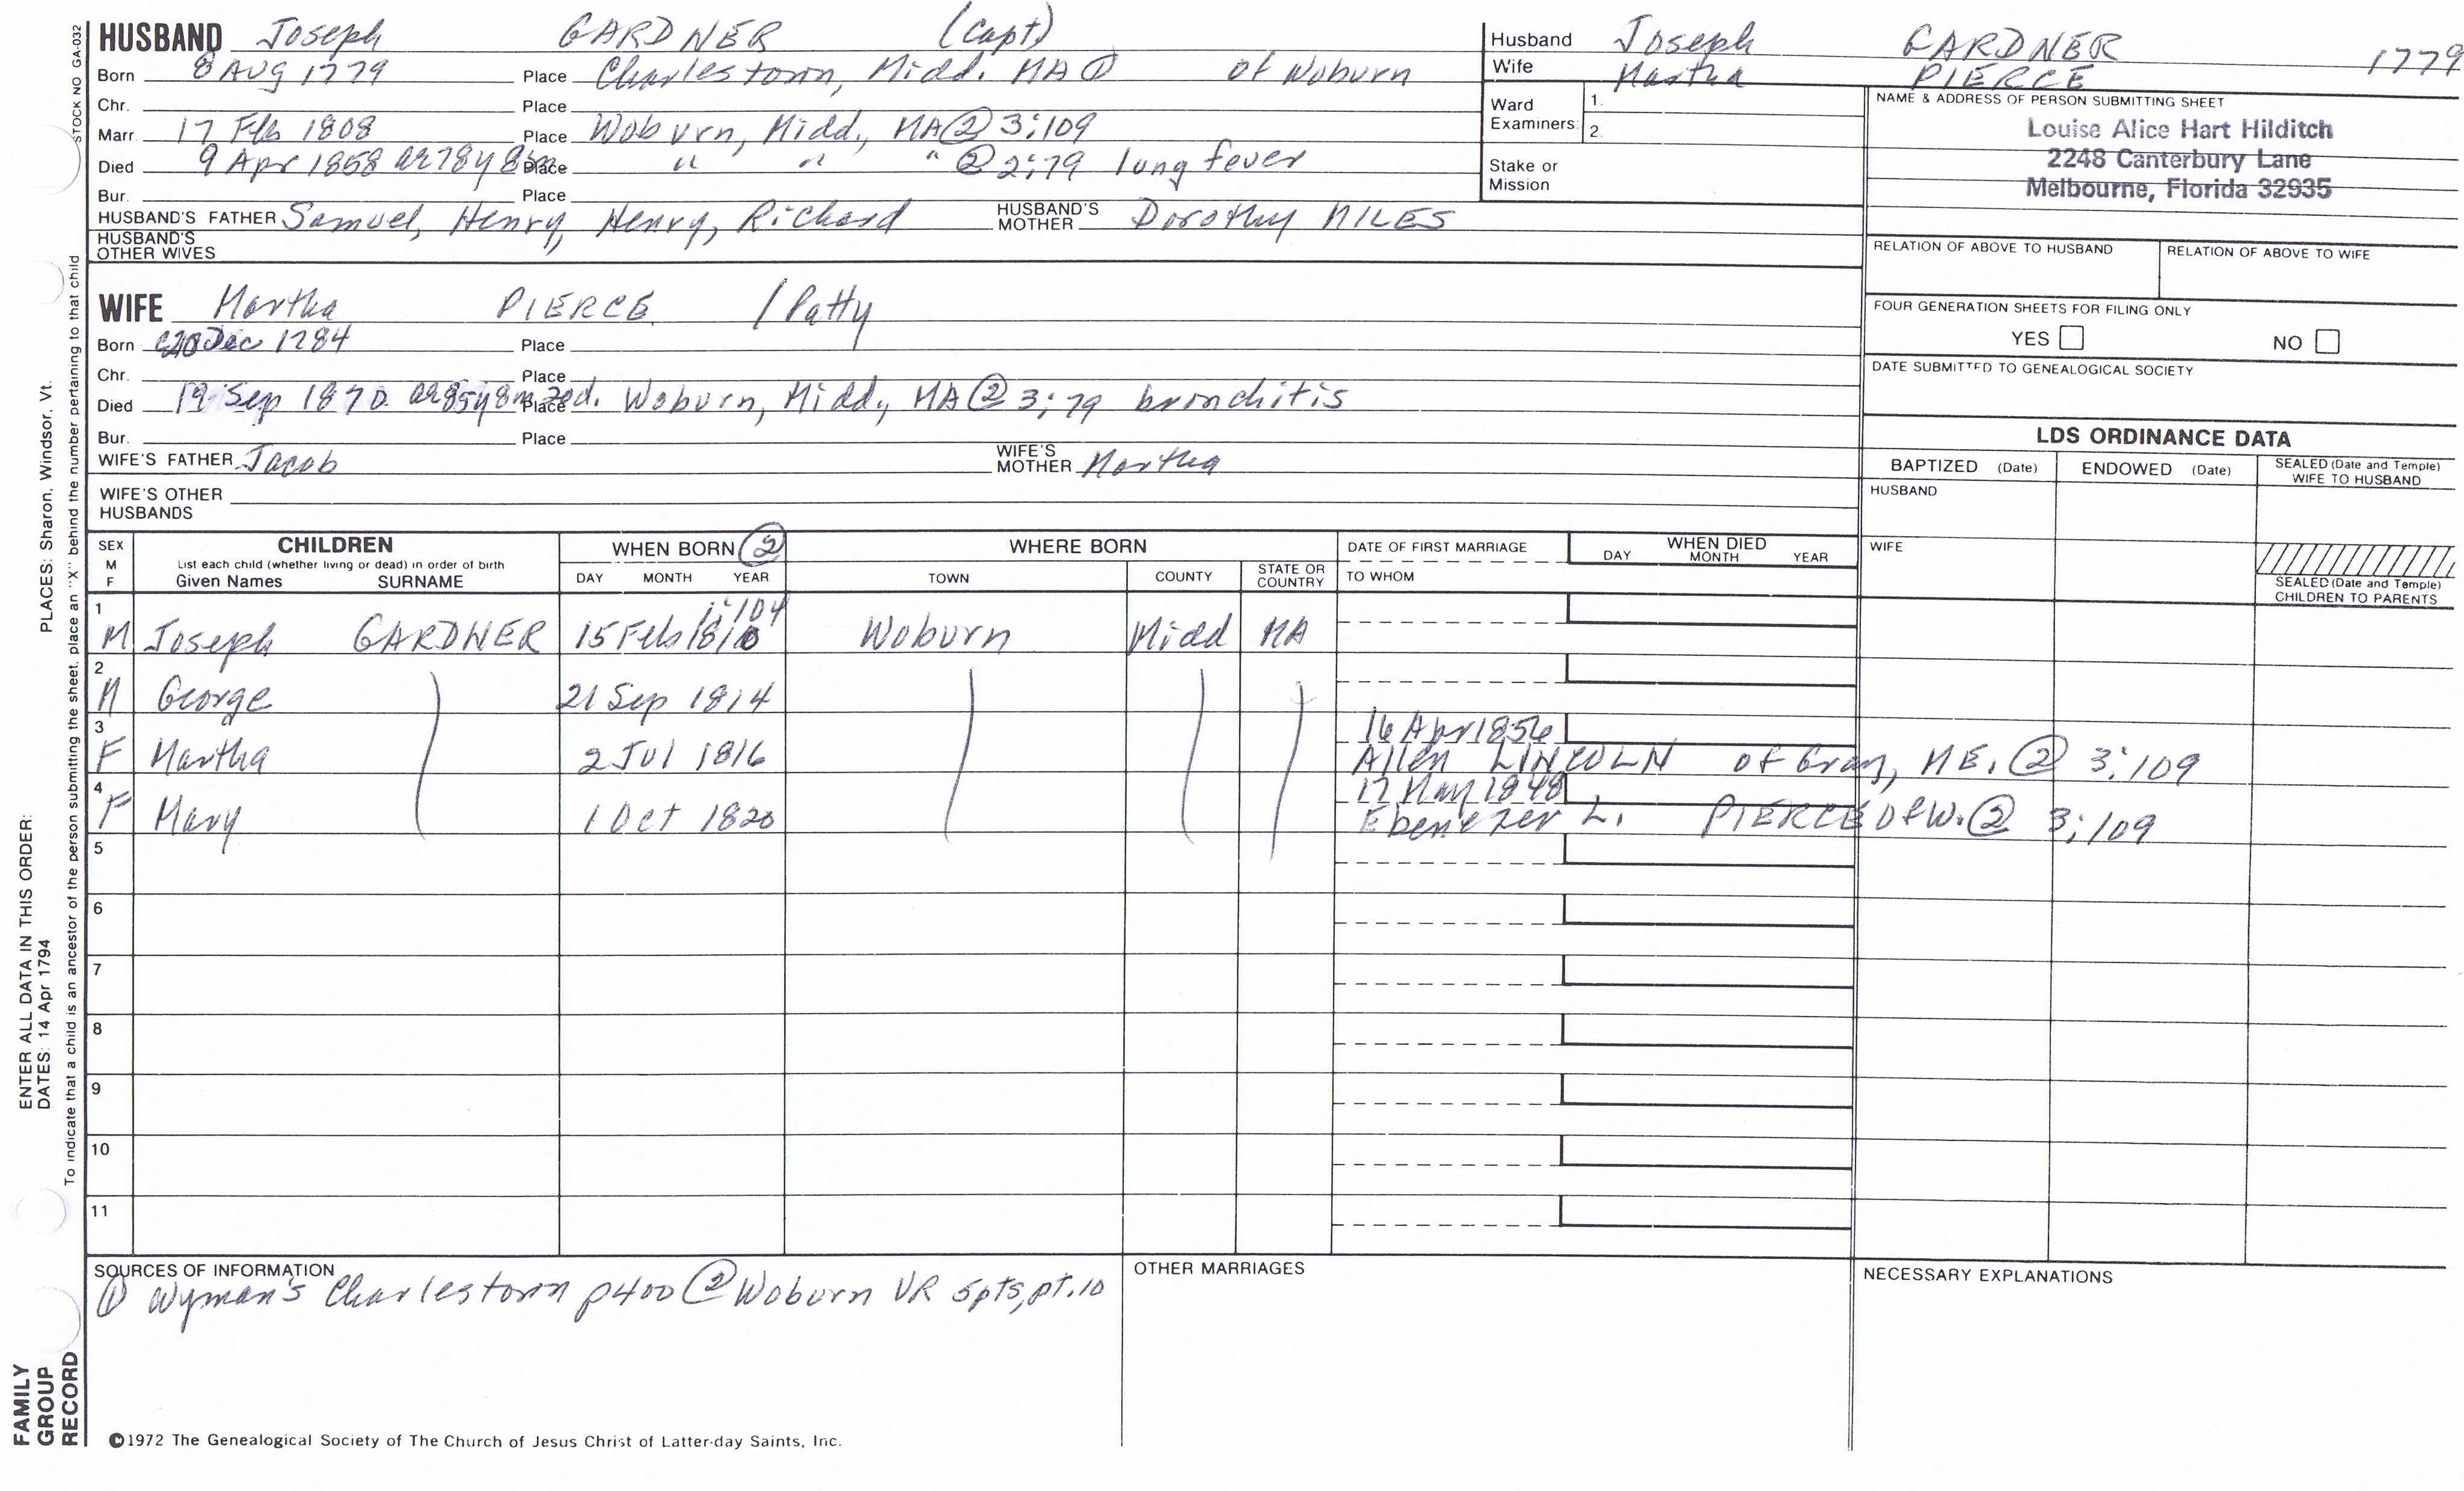 HUSBAND Joseph GARDNER (Capt)
Born 8 AUG 1779 Place Charlestown, Midd. MA ① of Woburn
Chr. Place
Marr. 17 Feb 1808 Place Woburn, Midd., MA ② 3:109
Died 9 Apr 1858 ae 78y 8m Place " " " ② 2:79 lung fever
Bur. Place
HUSBAND'S FATHER Samuel, Henry, Henry, Richard HUSBAND'S MOTHER Dorothy NILES
HUSBAND'S OTHER WIVES
WIFE Martha PIERCE / Patty
Born Dec 1784 Place
Chr. Place
Died 19 Sep 1870 ae 85y 8m 20d. Place Woburn, Midd, MA ② 3:79 bronchitis
Bur. Place
WIFE'S FATHER Jacob WIFE'S MOTHER Martha
WIFE'S OTHER HUSBANDS
Husband Joseph GARDNER 1779
Wife Martha PIERCE
Ward Examiners: 1. 2.
Stake or Mission
NAME & ADDRESS OF PERSON SUBMITTING SHEET
Louise Alice Hart Hilditch
2248 Canterbury Lane
Melbourne, Florida 32935
RELATION OF ABOVE TO HUSBAND RELATION OF ABOVE TO WIFE
FOUR GENERATION SHEETS FOR FILING ONLY
YES NO
DATE SUBMITTED TO GENEALOGICAL SOCIETY
LDS ORDINANCE DATA
BAPTIZED (Date) ENDOWED (Date) SEALED (Date and Temple) WIFE TO HUSBAND
HUSBAND
WIFE
SEALED (Date and Temple) CHILDREN TO PARENTS
SEX M F CHILDREN WHEN BORN ② WHERE BORN DATE OF FIRST MARRIAGE WHEN DIED
List each child (whether living or dead) in order of birth
Given Names SURNAME DAY MONTH YEAR TOWN COUNTY STATE OR COUNTRY TO WHOM DAY MONTH YEAR
1 1:104
M Joseph GARDNER 15 Feb 1810 Woburn Midd MA
2
M George 21 Sep 1814
3 16 Apr 1856
F Martha 2 Jul 1816 Allen LINCOLN of Gray, ME. ② 3:109
4 17 May 1848
F Mary 1 Oct 1820 Ebenezer L. PIERCE of W. ② 3:109
5
6
7
8
9
10
11
SOURCES OF INFORMATION
① Wyman's Charlestown p400 ② Woburn VR 5pts, pt. 10
OTHER MARRIAGES
NECESSARY EXPLANATIONS
©1972 The Genealogical Society of The Church of Jesus Christ of Latter-day Saints, Inc.
STOCK NO GA-032
To indicate that a child is an ancestor of the person submitting the sheet, place an "X" behind the number pertaining to that child
PLACES: Sharon, Windsor, Vt.
ENTER ALL DATA IN THIS ORDER:
DATES: 14 Apr 1794
FAMILY
GROUP
RECORD